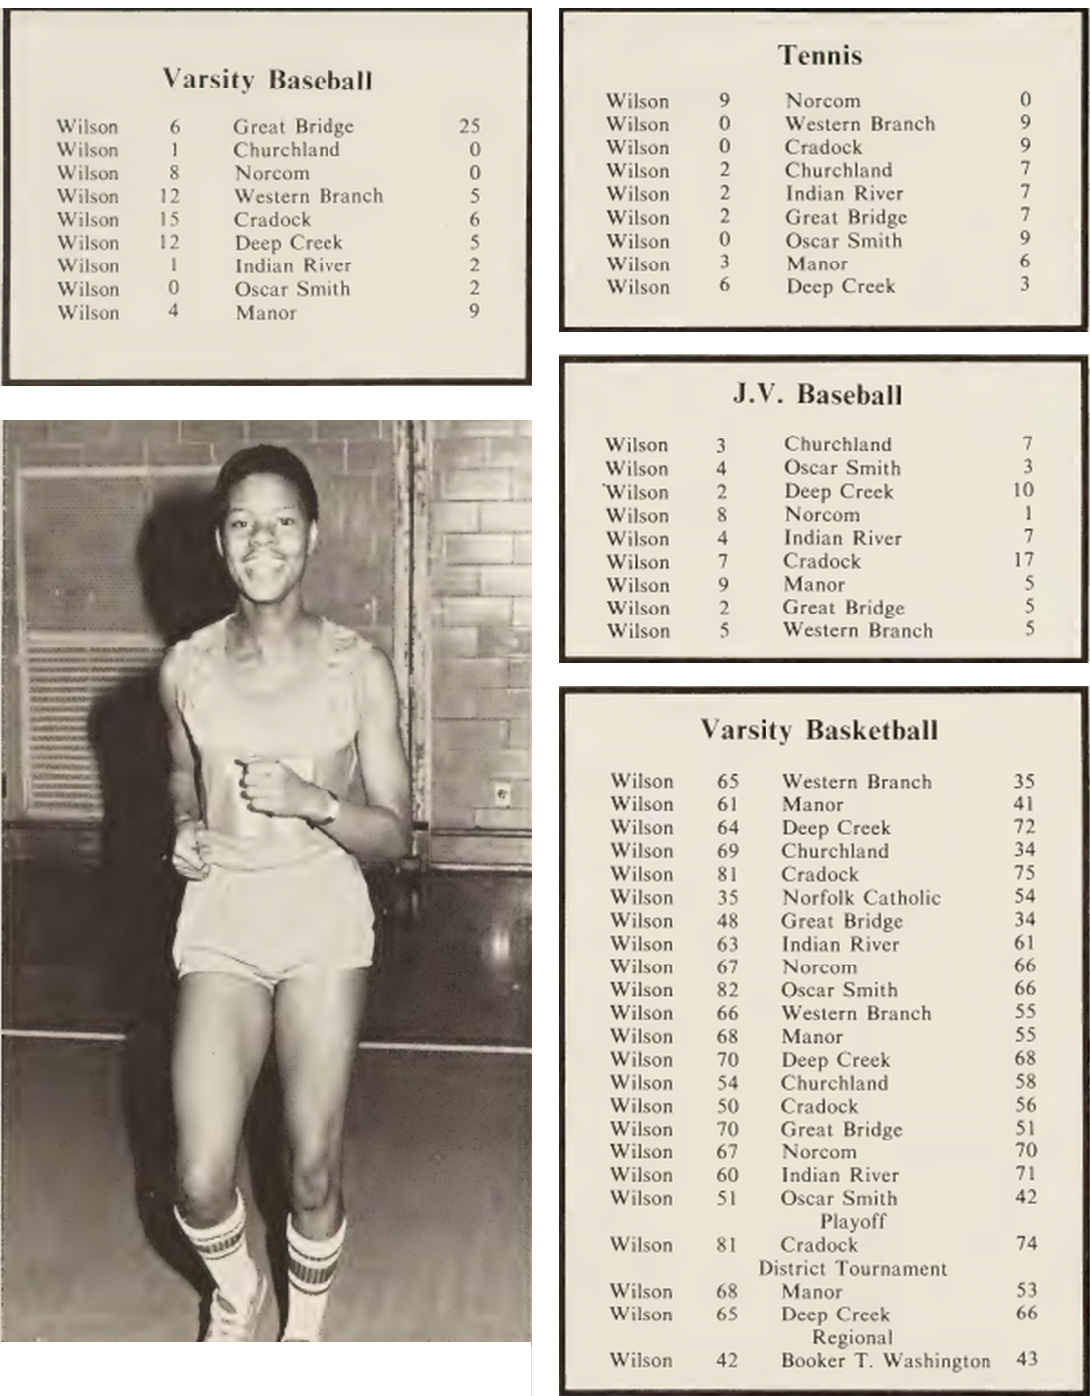 Varsity Baseball
Wilson 6 Great Bridge 25
Wilson 1 Churchland 0
Wilson 8 Norcom 0
Wilson 12 Western Branch 5
Wilson 15 Cradock 6
Wilson 12 Deep Creek 5
Wilson 1 Indian River 2
Wilson 0 Oscar Smith 2
Wilson 4 Manor 9
Tennis
Wilson 9 Norcom 0
Wilson 0 Western Branch 9
Wilson 0 Cradock 9
Wilson 2 Churchland 7
Wilson 2 Indian River 7
Wilson 2 Great Bridge 7
Wilson 0 Oscar Smith 9
Wilson 3 Manor 6
Wilson 6 Deep Creek 3
J.V. Baseball
Wilson 3 Churchland 7
Wilson 4 Oscar Smith 3
Wilson 2 Deep Creek 10
Wilson 8 Norcom 1
Wilson 4 Indian River 7
Wilson 7 Cradock 17
Wilson 9 Manor 5
Wilson 2 Great Bridge 5
Wilson 5 Western Branch 5
Varsity Basketball
Wilson 65 Western Branch 35
Wilson 61 Manor 41
Wilson 64 Deep Creek 72
Wilson 69 Churchland 34
Wilson 81 Cradock 75
Wilson 35 Norfolk Catholic 54
Wilson 48 Great Bridge 34
Wilson 63 Indian River 61
Wilson 67 Norcom 66
Wilson 82 Oscar Smith 66
Wilson 66 Western Branch 55
Wilson 68 Manor 55
Wilson 70 Deep Creek 68
Wilson 54 Churchland 58
Wilson 50 Cradock 56
Wilson 70 Great Bridge 51
Wilson 67 Norcom 70
Wilson 60 Indian River 71
Wilson 51 Oscar Smith 42
Playoff
Wilson 81 Cradock 74
District Tournament
Wilson 68 Manor 53
Wilson 65 Deep Creek 66
Regional
Wilson 42 Booker T. Washington 43